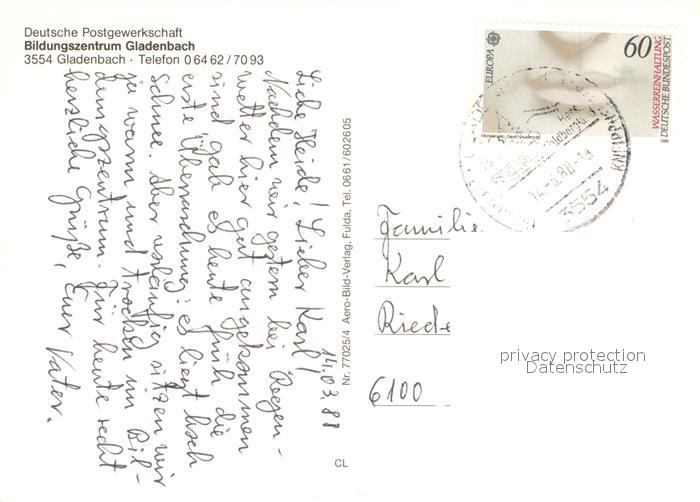 Deutsche Postgewerkschaft
Bildungszentrum Gladenbach
3554 Gladenbach · Telefon 0 64 62 / 70 93
14.03.88
Liebe Heide! Lieber Karl!
Nachdem wir gestern bei Regen-
wetter hier gut angekommen
sind gab es heute früh die
erste Überraschung: es liegt
Schnee. Aber vorläufig sitzen wir
ja warm und trocken im Bil-
dungszentrum. Für heute recht
herzliche Grüße, Euer Vater.
Nr. 77025/4 Aero-Bild-Verlag, Fulda, Tel. 0661/602605
CL
EUROPA
60
WASSERREINHALTUNG
DEUTSCHE BUNDESPOST
14.-3.88
3554
Familie
Karl
Riede
6100
privacy protection
Datenschutz